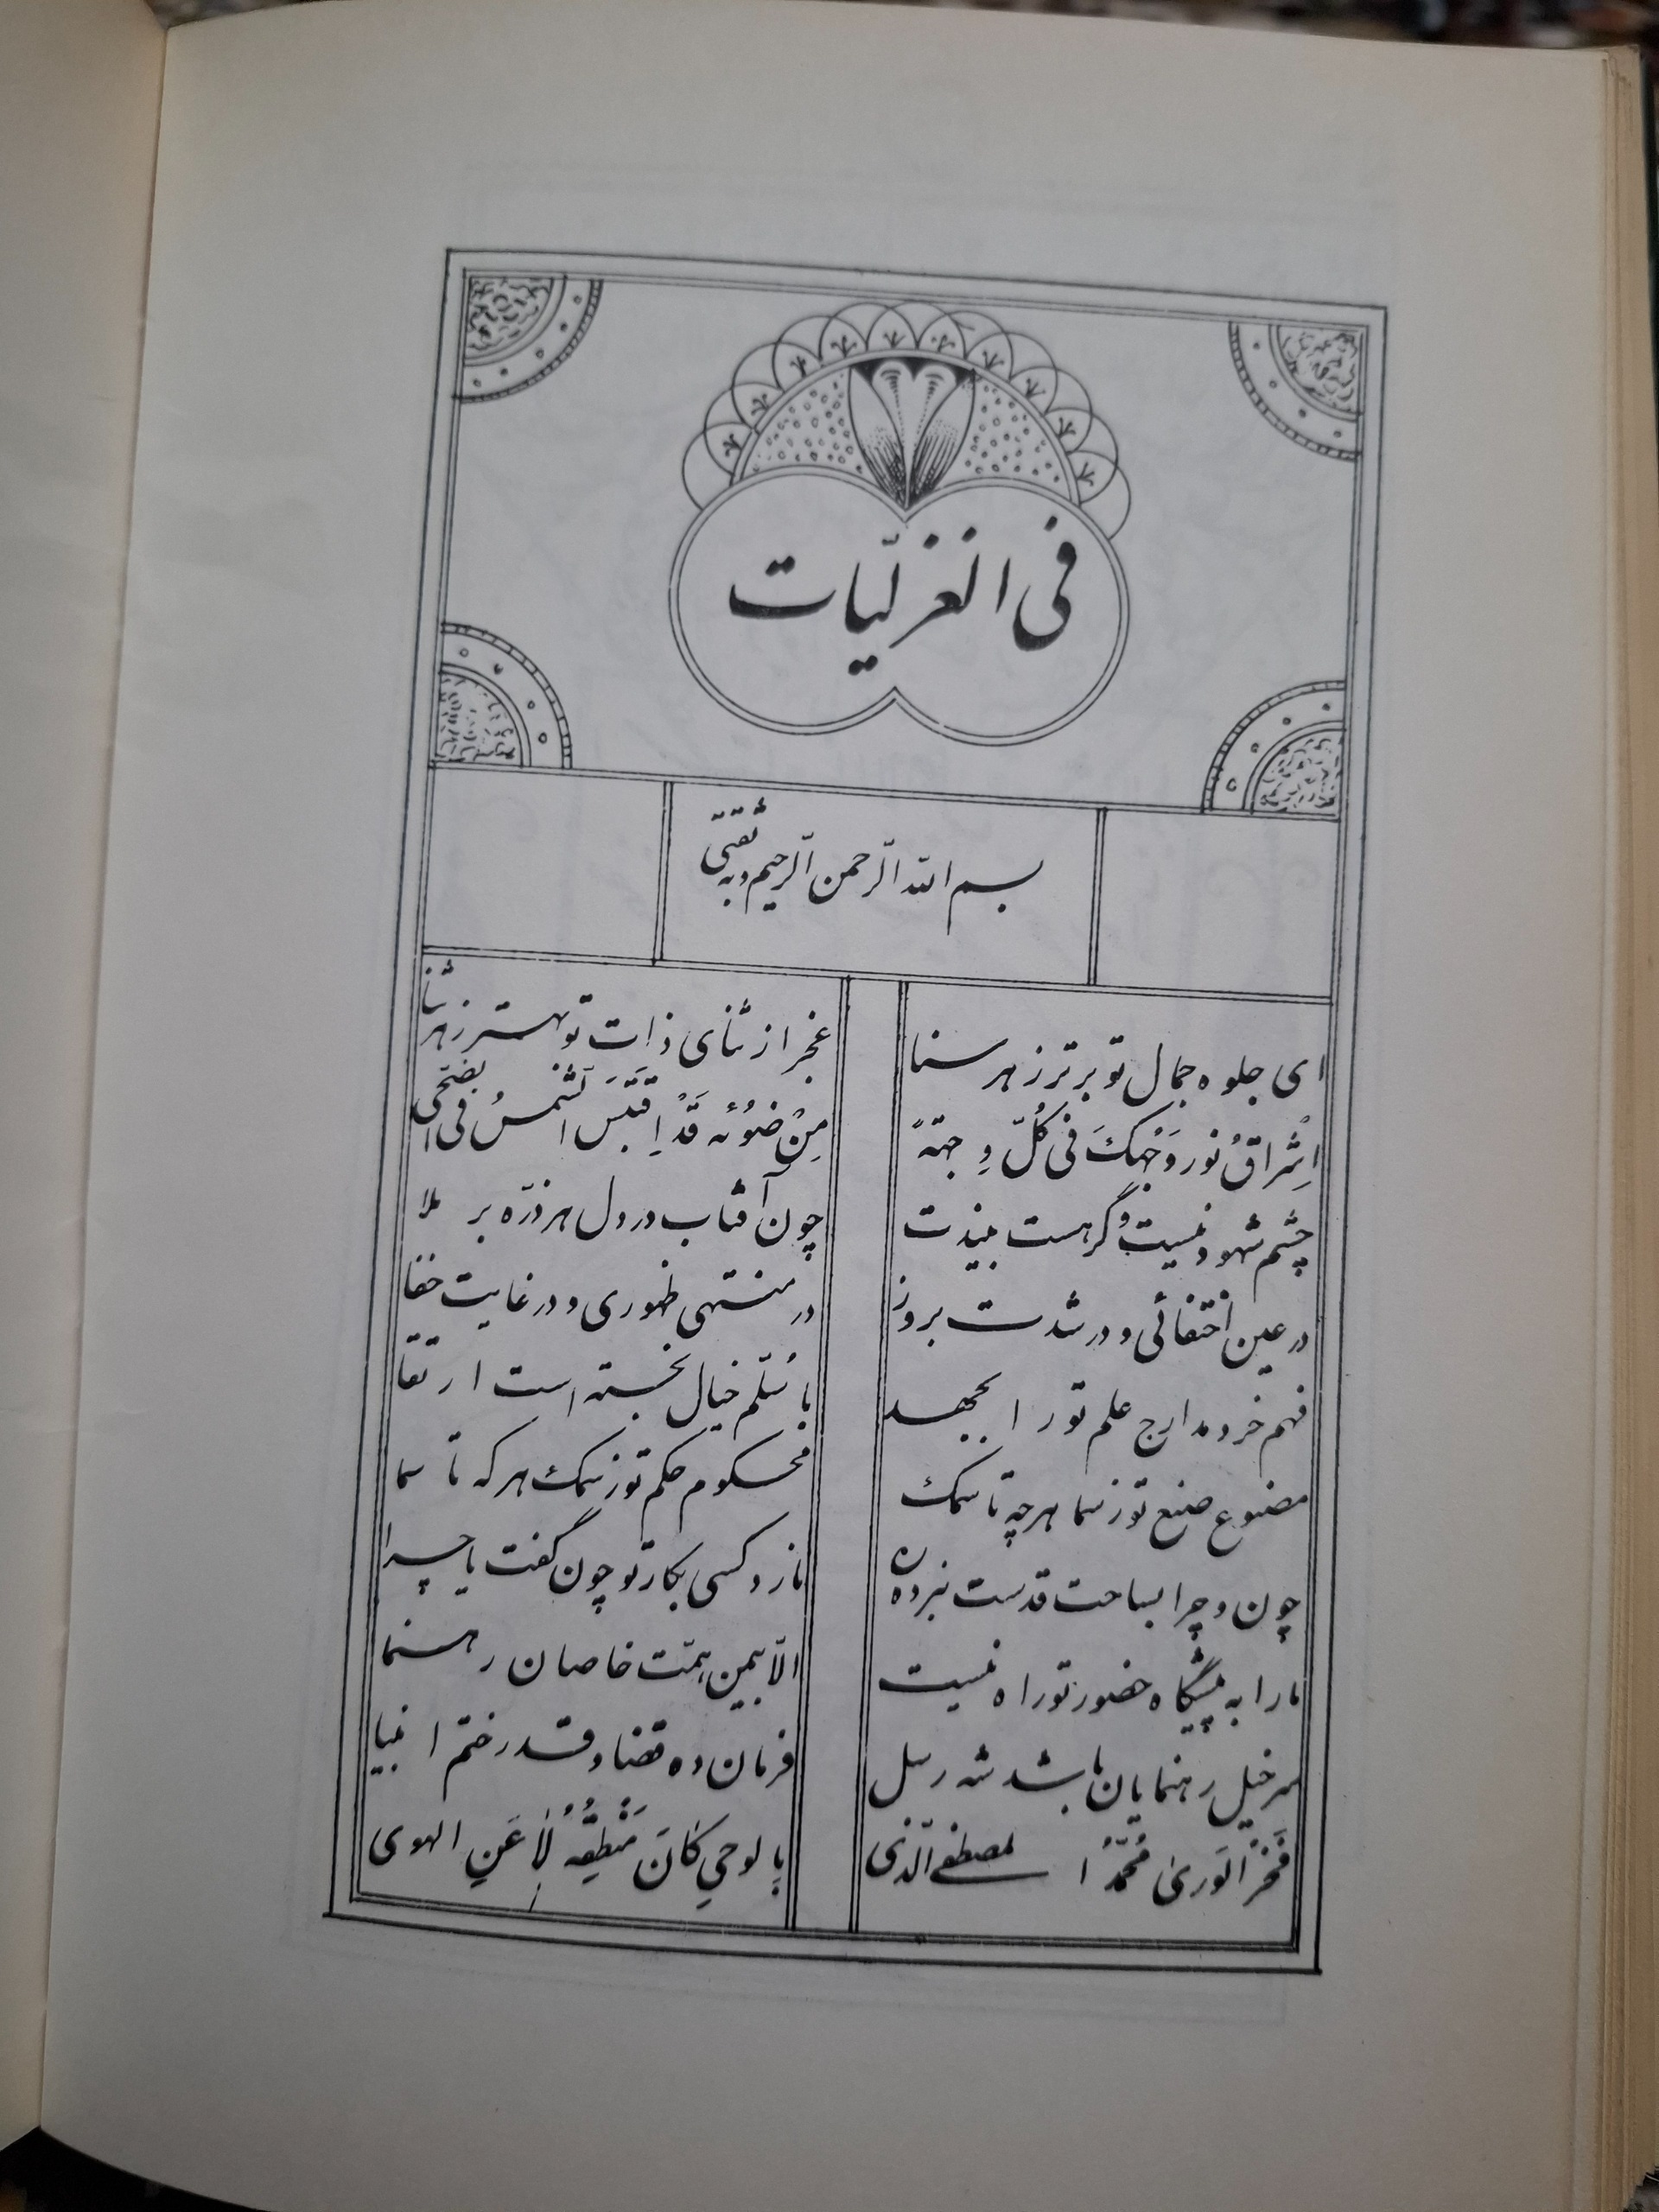 فی الغزلیّات
بسم الله الرّحمن الرّحیم و به ثقتی
ای جلوه جمال تو برتر ز هر سنا
عجز از ثنای ذات تو بهتر ز هر ثنا
اِشراقُ نور وَجْهِکَ فی کُلّ وِجهَةً
مِنْ ضَوْئه قَدْ اِقْتَبَسَ اَلشَّمسُ فی الضحی
چشم شهود نیست و گر هست بیندت
چون آفتاب در دل هر ذرّه بر ملا
در عین اختفائی و در شدت بروز
در منتهی ظهوری و در غایت خفا
فهم خرد مدارج علم تو را بجهد
با سُلّم خیال نجسته است ارتقا
مصنوع صنع تو ز سما هر چه تا سمک
محکوم حکم تو ز سمک هر که تا سما
چون و چرا بساحت قدست نبرده ره
نارد کسی بکار تو چون گفت یا چرا
ما را به پیشگاه حضور تو راه نیست
الّا بیمین همّت خاصان رهنما
سرخیل رهنمایان باشد شه رسل
فرمان ده قضا و قدر ختم انبیا
فَخرُ الوَری مُحَمّدٌ المصطفی الّذی
بِالوحیِ کانَ مَنْطِقُهُ لا عَنِ الهوی